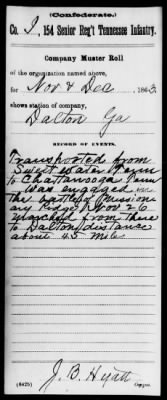 (Confederate.)
Co. I, 154 Senior Reg't Tennessee Infantry.
Company Muster Roll
of the organization named above,
for Nov & Dec, 1863
shows station of company,
Dalton Ga
RECORD OF EVENTS.
Transported from
Sweet water Tenn
to Chattanooga Tenn
was engaged in
the battle of Mission
ary Ridge Nov 26
marched from there
to Dalton distance
about 45 miles
J. B. Hyatt
(6425) Copyist.